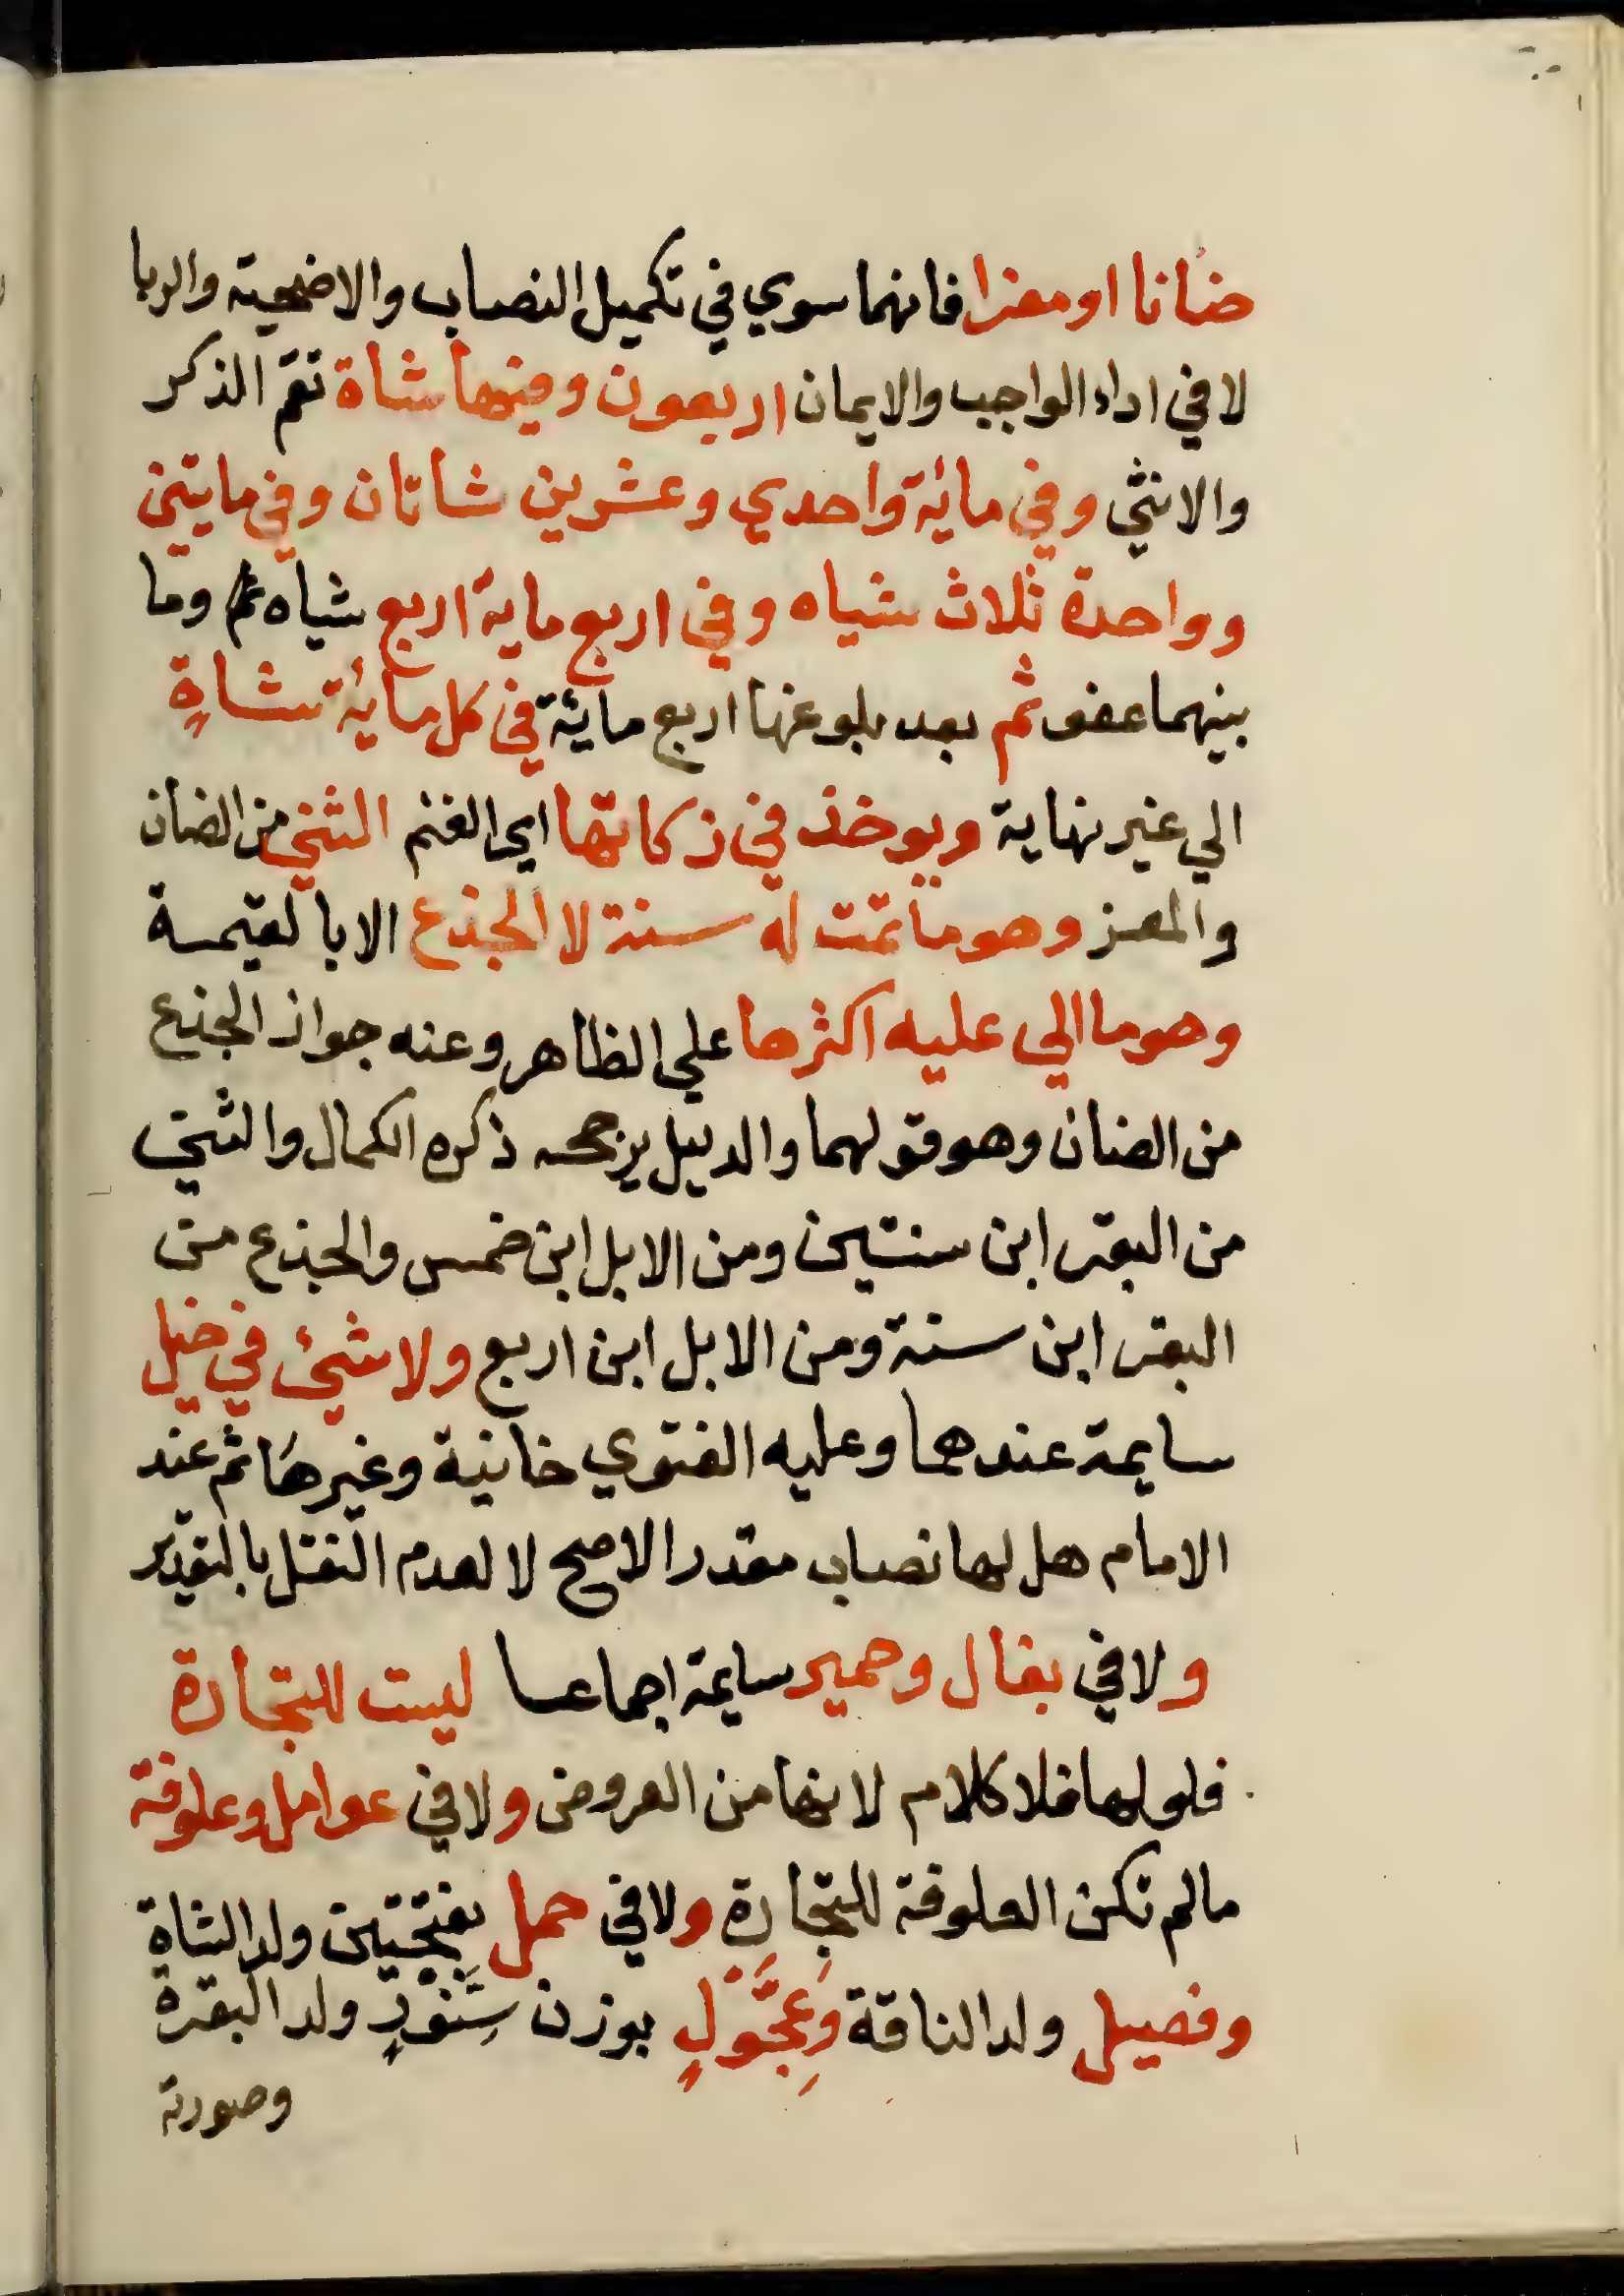 ضانا او معزا فانهما سوي في تكميل النصاب والاضحية والربا
لا في اداء الواجب والايمان اربعون وفيها شاة تعم الذكر
والانثي وفي مائة واحدي وعشرين شاتان وفي مايتين
وواحدة ثلاث شياه وفي اربع ماية اربع شياه وما
بينهما عفو ثم بعد بلوغها اربع مائة في كل مائة شاةٍ
الي غير نهاية ويوخذ في زكاتها اي الغنم الثني من الضان
والمعز وهو ما تمت له سنة لا الجذع الا بالقيمة
وهو ما الي عليه اكثرها علي الظاهر وعنه جواز الجذع
من الضان وهو قولهما والدليل يرجحه ذكره الكمال والثني
من البقر ابن سنتين ومن الابل ابن خمس والجذع من
البقر ابن سنة ومن الابل ابن اربع ولا شئ في خيل
سايمة عندهما وعليه الفتوي خانية وغيرها ثم عند
الامام هل لها نصاب مقدر الاصح لا لعدم النقل بالتقدير
ولا في بغال وحمير سايمة اجماعا ليست للتجارة
فلو لها فلا كلام لانها من العروض ولا في عوامل وعلوفة
ما لم تكن العلوفة للتجارة ولا في حمل بفتحتين ولد الشاة
وفصيل ولد الناقة وعِجَّوْلٍ بوزن سِنَّوْرٍ ولد البقرة
وصورته